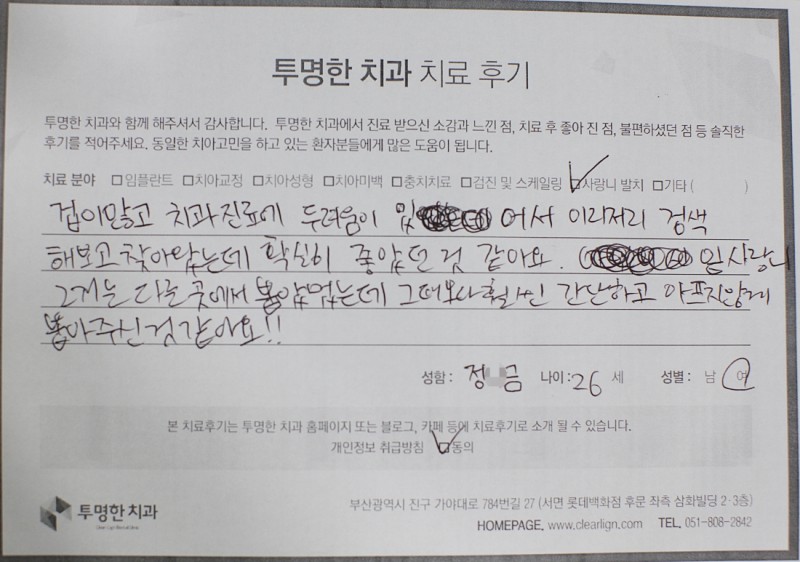 투명한 치과 치료 후기
투명한 치과와 함께 해주셔서 감사합니다. 투명한 치과에서 진료 받으신 소감과 느낀 점, 치료 후 좋아 진 점, 불편하셨던 점 등 솔직한
후기를 적어주세요. 동일한 치아고민을 하고 있는 환자분들에게 많은 도움이 됩니다.
치료 분야 □임플란트 □치아교정 □치아성형 □치아미백 □충치치료 □검진 및 스케일링 ☑사랑니 발치 □기타 ( )
겁이많고 치과진료에 두려움이 있 어서 이리저리 검색
해보고 찾아왔는데 확실히 좋았던 것 같아요. 사랑니
그거는 다른 곳에서 뽑았었는데 그때보다 훨씬 간단하고 아프지않게
뽑아주신것 같아요!!
성함 : 정 금 나이 : 26 세 성별 : 남 여
본 치료후기는 투명한 치과 홈페이지 또는 블로그, 카페 등에 치료후기로 소개 될 수 있습니다.
개인정보 취급방침 ☑동의
투명한 치과
부산광역시 진구 가야대로 784번길 27 (서면 롯데백화점 후문 좌측 삼화빌딩 2·3층)
HOMEPAGE. www.clearlign.com TEL. 051-808-2842